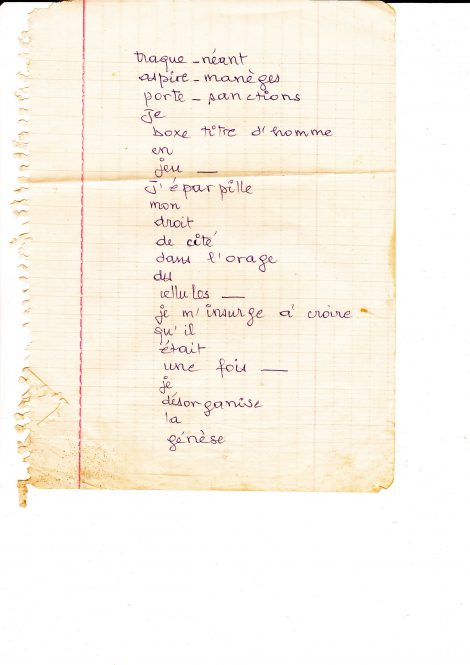 traque - néant
aspire - manèges
porte - sanctions
je
boxe titre d'homme
en
jeu —
j'éparpille
mon
droit
de cité
dans l'orage
des
cellules —
je m'insurge à croire
qu'il
était
une fois —
je
désorganise
la
génèse